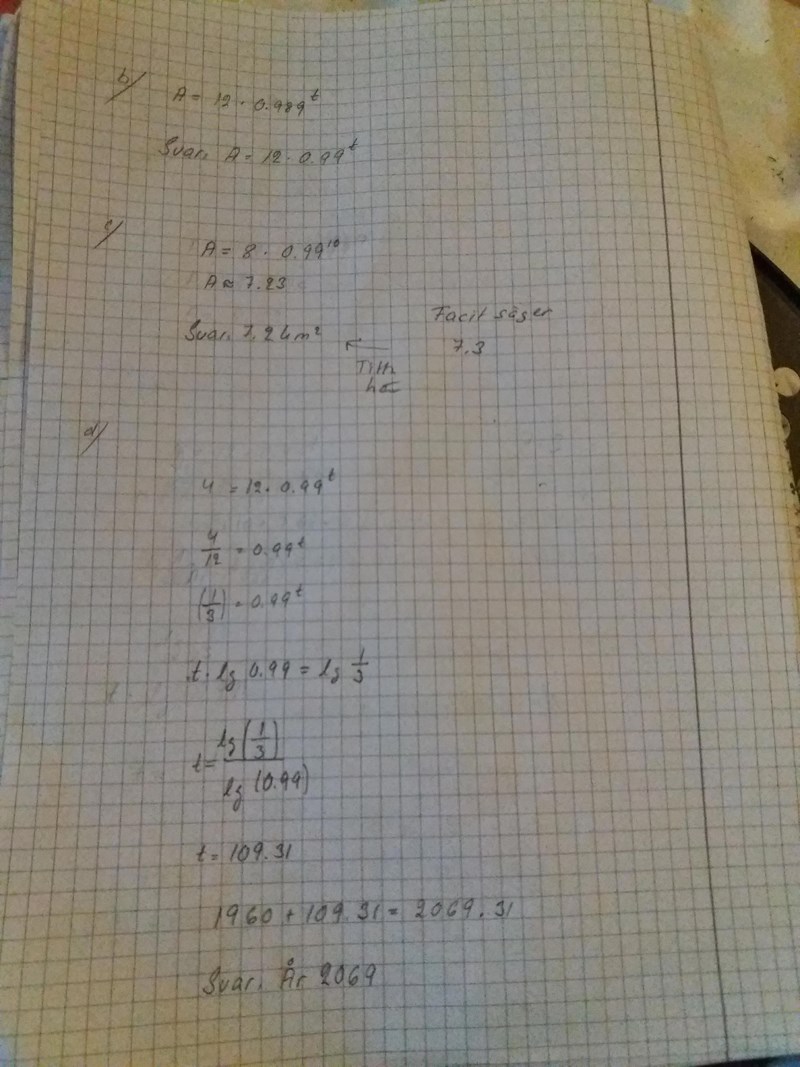 b/
A = 12 · 0.989^t
Svar. A = 12 · 0.99^t
c/
A = 8 · 0.99^10
A ≈ 7.23
Svar. 7.2 km²
Facit säger
7.3
d/
4 = 12 · 0.99^t
4/12 = 0.99^t
(1/3) = 0.99^t
t · lg 0.99 = lg 1/3
t = lg(1/3) / lg(0.99)
t = 109.31
1960 + 109.31 = 2069.31
Svar. År 2069